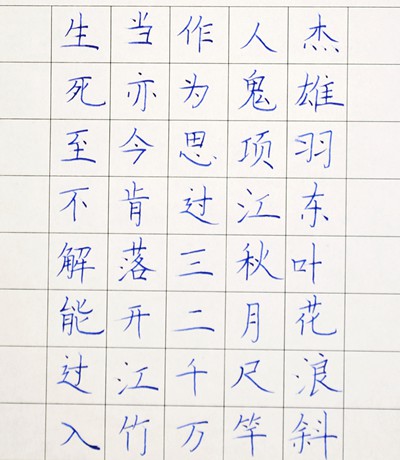 生当作人杰
死亦为鬼雄
至今思项羽
不肯过江东
解落三秋叶
能开二月花
过江千尺浪
入竹万竿斜